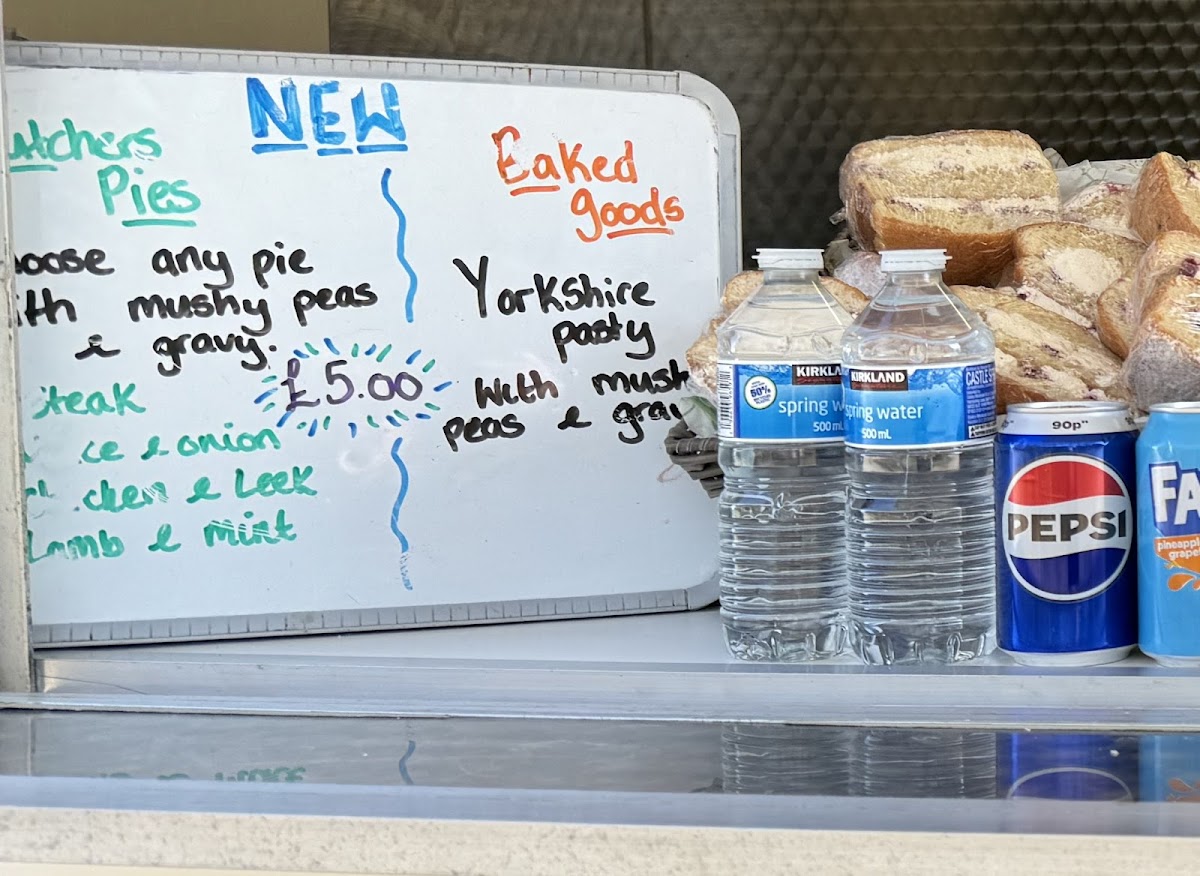 NEW
utchers
Pies
oose any pie
ith mushy peas
& gravy.
£5.00
teak
ce & onion
cken & Leek
Lamb & mint
Baked
goods
Yorkshire
pasty
with mush
peas & grav
KIRKLA
50%
spring w
500 mL
KIRKLAND
spring water
500 mL
CASTLE SP
90p"
PEPSI
FA
pineapple
grapef